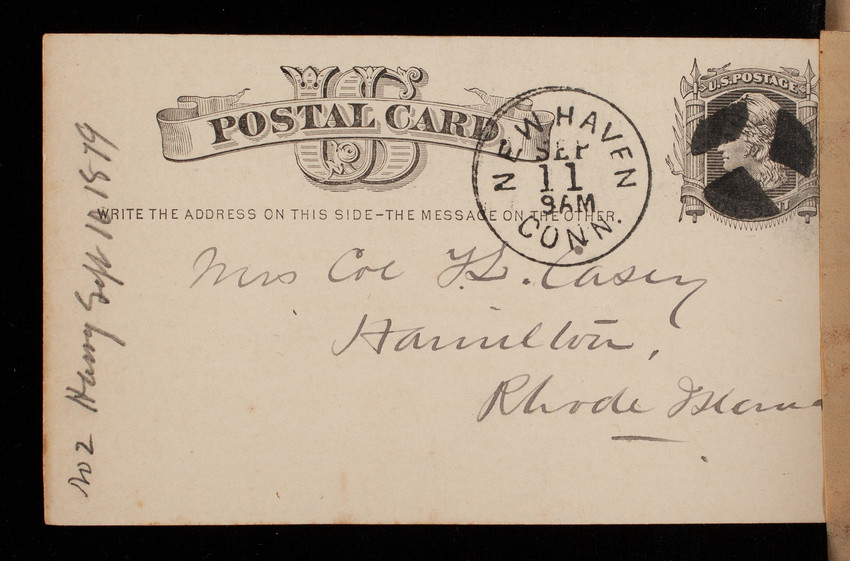 US
POSTAL CARD
U.S. POSTAGE
NEW HAVEN
SEP
11
9AM
CONN.
WRITE THE ADDRESS ON THIS SIDE-THE MESSAGE ON THE OTHER.
Mrs Col T.L. Casey
Hamilton,
Rhode Island
no 2 Harry Sept 10 1879